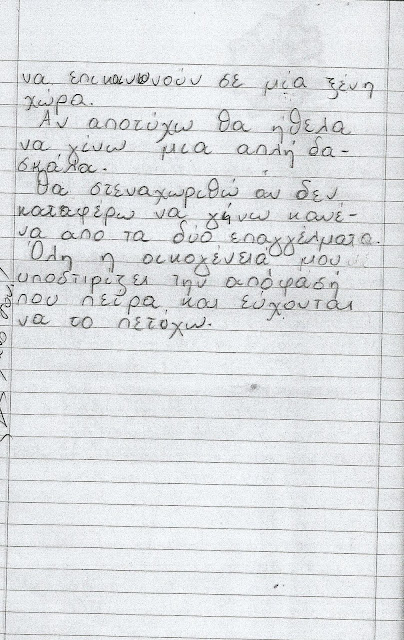 να επικαινωνούν σε μία ξένη
χώρα.
Αν αποτύχω θα ήθελα
να γίνω μια απλή δα-
σκάλα.
Θα στεναχωριθώ αν δεν
καταφέρω να γήνω κανέ-
να από τα δύο επαγγέλματα.
Όλη η οικογένεια μου
υποστιρίζει την απόφαση
που πείρα και εύχονται
να το πετύχω.